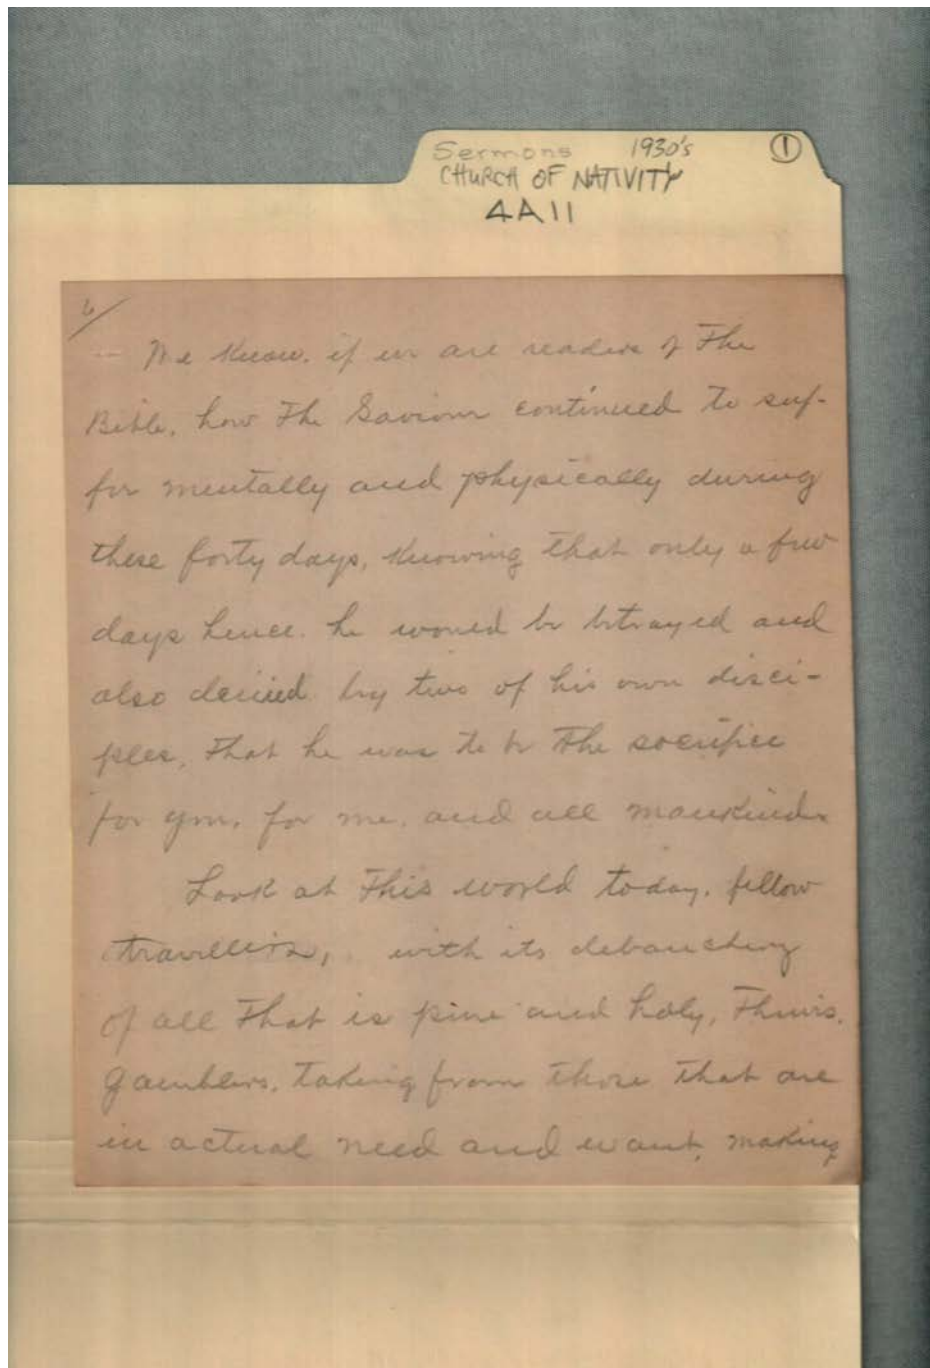 Sermons 1930's ①
CHURCH OF NATIVITY
4A11
6/
We know, if we are readers of The
Bible, how The Saviour continued to suf-
fer mentally and physically during
these forty days, knowing that only a few
days hence. he would be betrayed and
also denied by two of his own disci-
ples, That he was to be The sacrifice
for you, for me, and all mankind.
Look at This world today, fellow
travellers, with its debauchery
of all That is pure and holy, Thieves,
gamblers, taking from those that are
in actual need and want, making